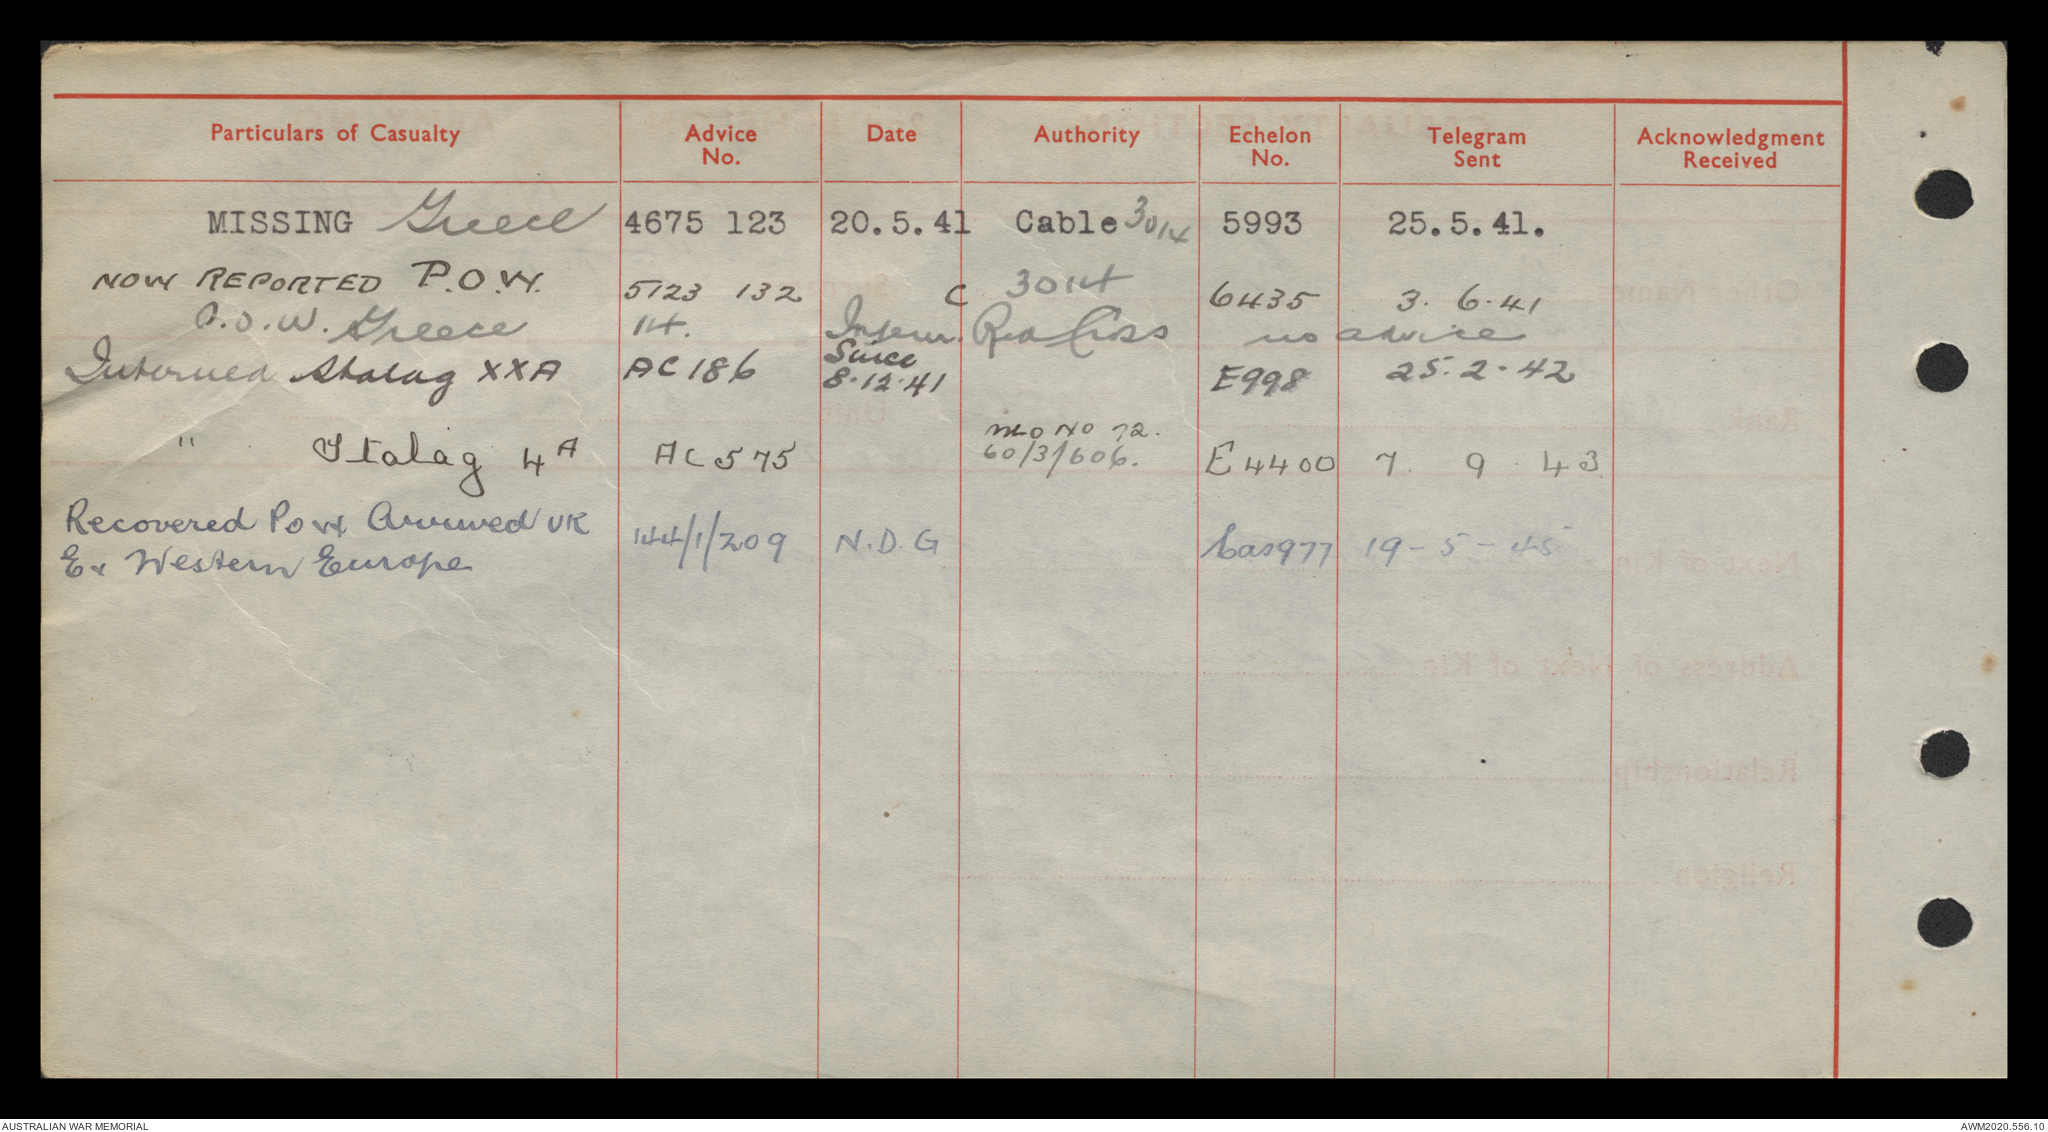 Particulars of Casualty Advice No. Date Authority Echelon No. Telegram Sent Acknowledgment Received
MISSING Greece 4675 123 20.5.41 Cable 3014 5993 25.5.41.
NOW REPORTED P.O.W. 5123 132 C 3014 6435 3. 6.41
P.O.W. Greece 14. Red Cross no advice
Interned Stalag XXA AC 186 Since 8.12.41 E998 25.2.42
" Stalag 4A AC 575 60/3/606. E4400 7 9 43
Recovered PoW Arrived UK
Ex Western Europe 144/1/209 N.D.G Cas977 19-5-45
Other Names
Rank
Unit
Next of Kin
Address of Next of Kin
Relationship
Religion
AUSTRALIAN WAR MEMORIAL AWM2020.556.10